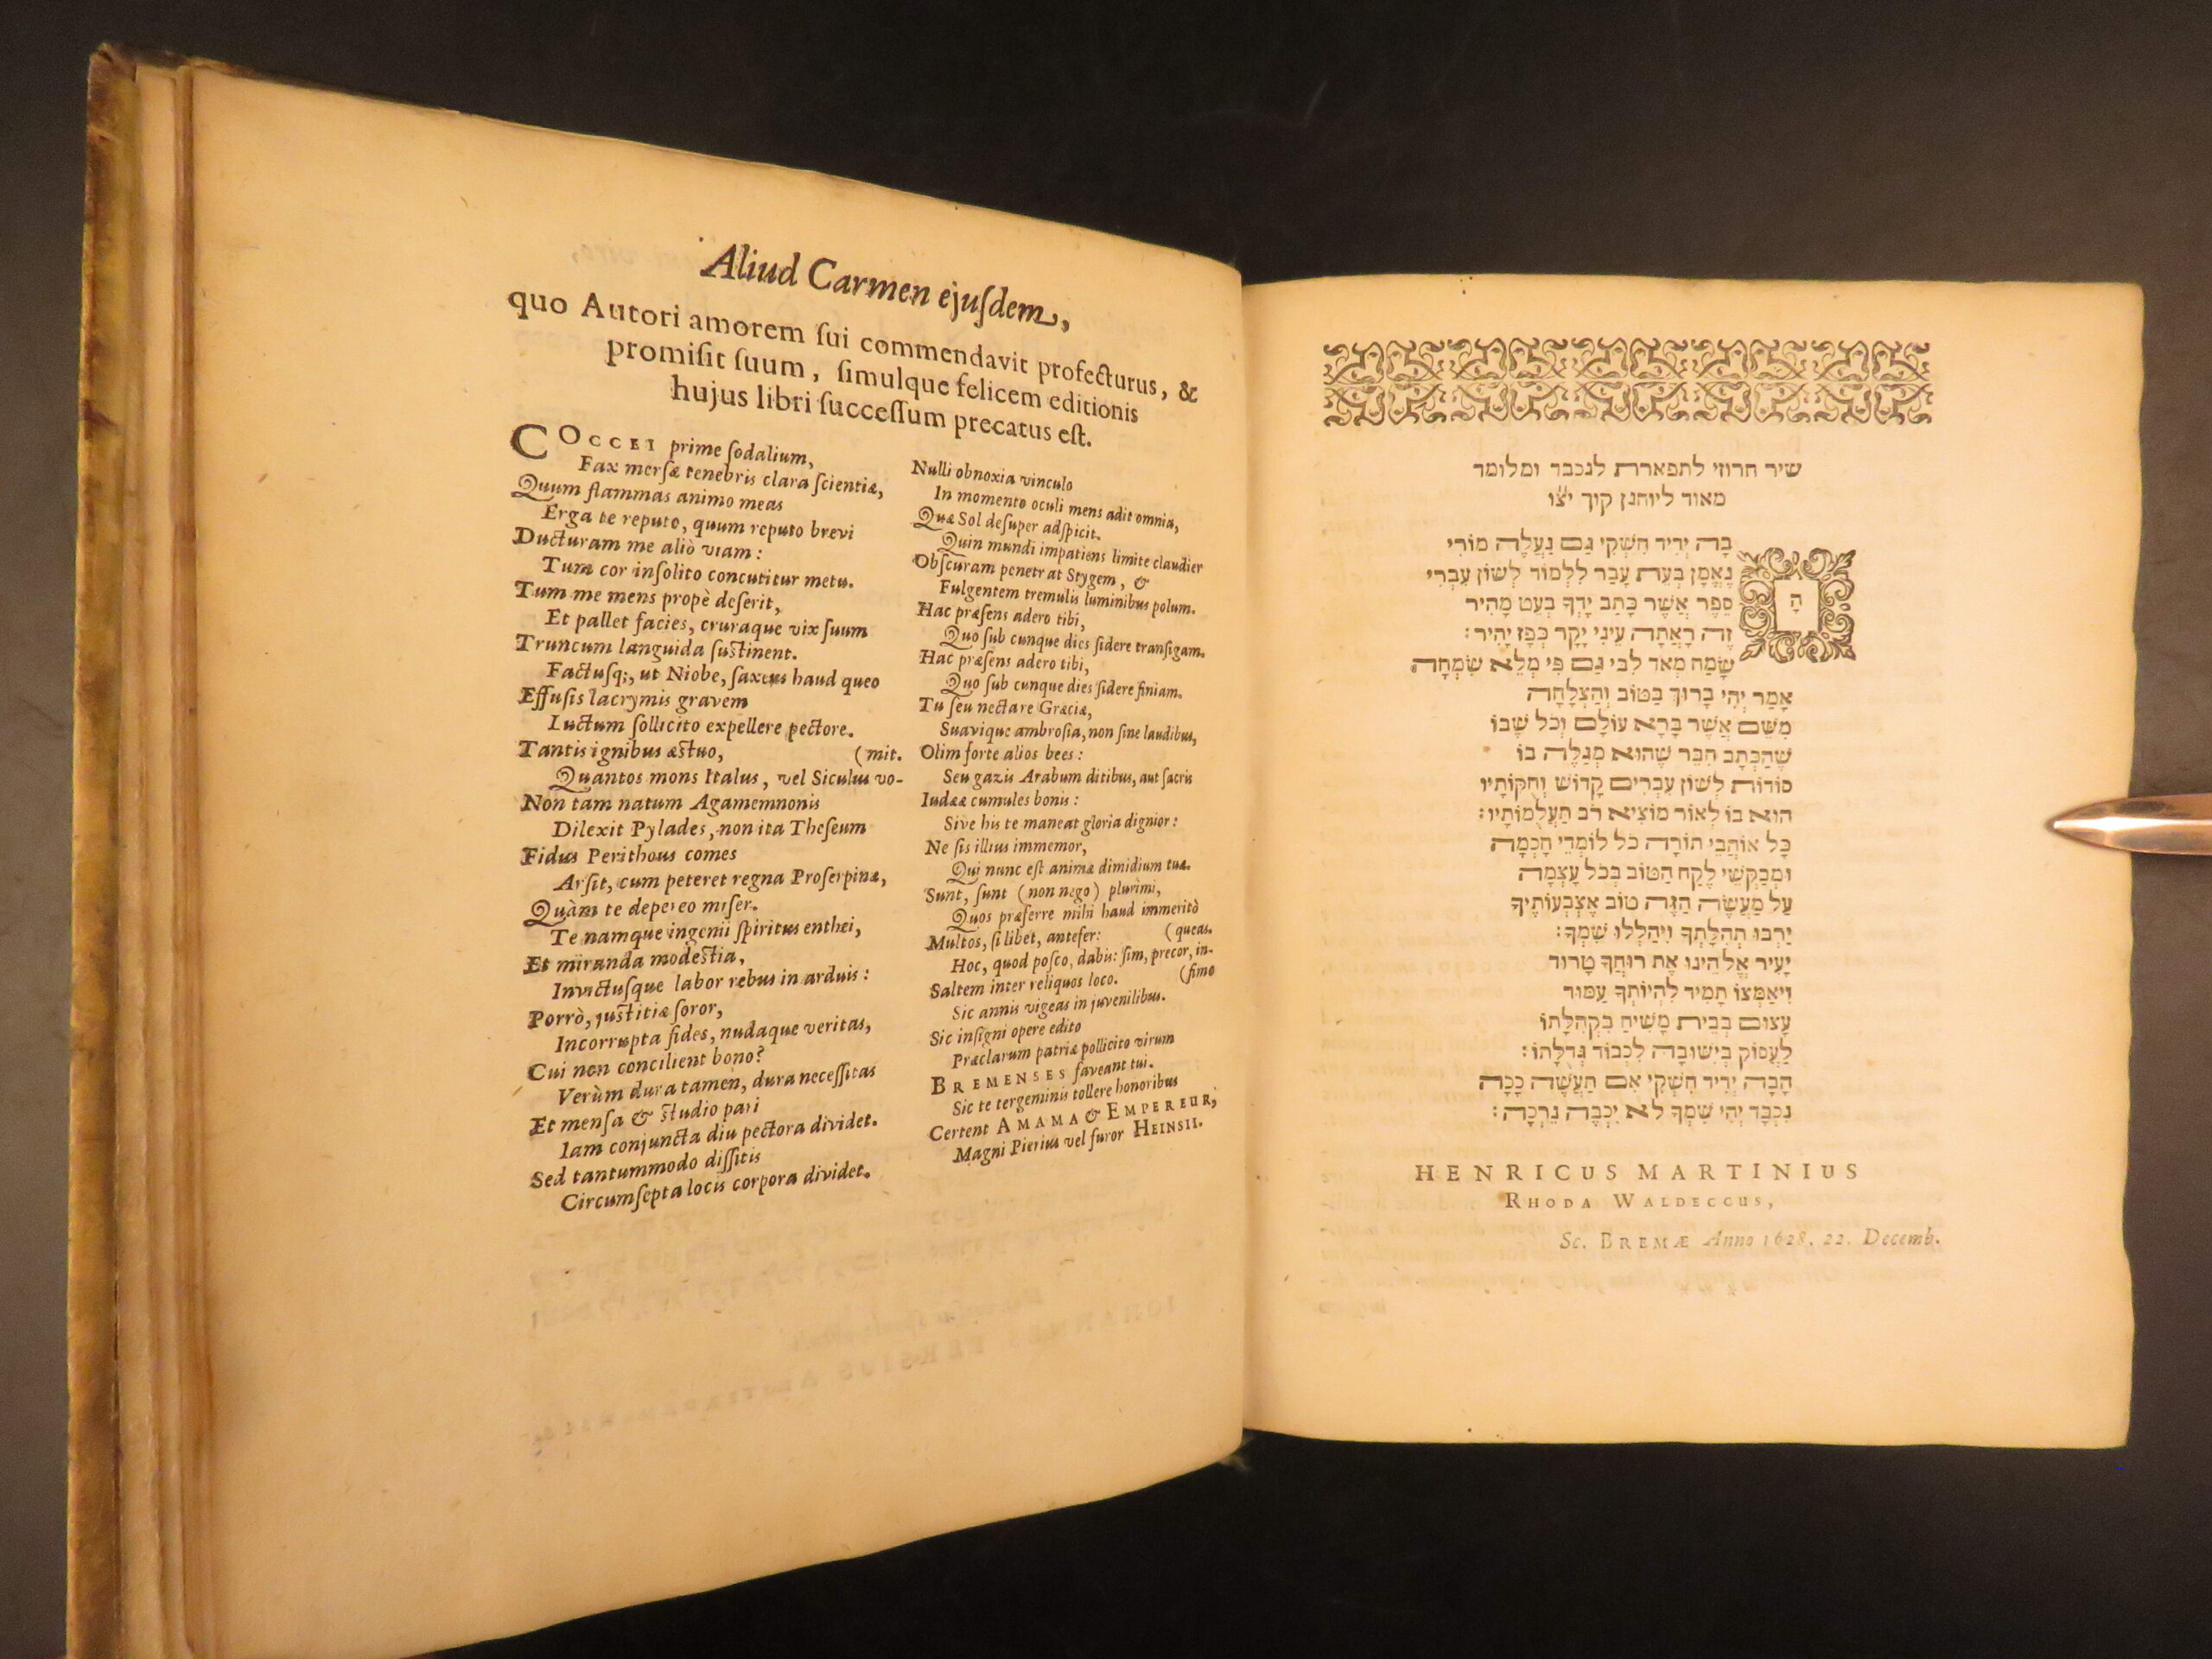 Aliud Carmen ejuſdem,
quo Autori amorem ſui commendavit profecturus, &
promiſit ſuum, ſimulque felicem editionis
hujus libri ſucceſſum precatus eſt.
COCCEI prime ſodalium,
Fax merſæ tenebris clara ſcientiæ,
Quum flammas animo meas
Erga te reputo, quum reputo brevi
Ducturam me aliò viam:
Tum cor inſolito concutitur metu.
Tum me mens propè deſerit,
Et pallet facies, cruraque vix ſuum
Truncum languida ſuſtinent.
Factuſq;, ut Niobe, ſaxeus haud queo
Effuſis lacrymis gravem
Luctum ſollicito expellere pectore.
Tantis ignibus æſtuo, (mit.
Quantos mons Italus, vel Siculus vo-
Non tam natum Agamemnonis
Dilexit Pylades, non ita Theſeum
Fidus Perithous comes
Arſit, cum peteret regna Proſerpinæ,
Quàm te depereo miſer.
Te namque ingenii ſpiritus enthei,
Et miranda modeſtia,
Invictuſque labor rebus in arduis:
Porrò, juſtitiæ ſoror,
Incorrupta fides, nudaque veritas,
Cui non concilient bono?
Verùm dura tamen, dura neceſſitas
Et menſa & ſtudio pari
Iam conjuncta diu pectora dividet.
Sed tantummodo diſſitis
Circumſepta locis corpora dividet.
Nulli obnoxia vinculo
In momento oculi mens adit omnia,
Quæ Sol deſuper adſpicit.
Quin mundi impatiens limite claudier
Obſcuram penetrat Stygem, &
Fulgentem tremulis luminibus polum.
Hac præſens adero tibi,
Quo ſub cunque dies ſidere tranſigam.
Hac præſens adero tibi,
Quo ſub cunque dies ſidere finiam.
Tu ſeu nectare Græciæ,
Suavique ambroſia, non ſine laudibus,
Olim forte alios bees:
Seu gazis Arabum ditibus, aut ſacris
Iudææ cumules bonis:
Sive his te maneat gloria dignior:
Ne ſis illius immemor,
Qui nunc eſt animæ dimidium tuæ.
Sunt, ſunt (non nego) plurimi,
Quos præferre mihi haud immeritò
Multos, ſi libet, antefer: (queas.
Hoc, quod poſco, dabis: ſim, precor, in-
Saltem inter reliquos loco. (fimo
Sic annis vigeas in juvenilibus.
Sic inſigni opere edito
Præclarum patriæ pollicito virum
BREMENSES faveant tui.
Sic te tergeminis tollere honoribus
Certent AMAMA & EMPEREUR,
Magni Pierius vel furor HEINSII.
שיר חרוזי לתפארת לנכבד ומלומד
מאוד ליוחנן קוך יצ״ו
הָ
בָה יְדִיד חִשְׁקִי גַם נַעֲלֶה מוֹרִי
נֶאֱמָן בְּעֵת עָבַר לִלְמוֹד לְשׁוֹן עִבְרִי
סֵפֶר אֲשֶׁר כָּתַב יָדְךָ בְּעֵט מָהִיר
זֶה רָאֲתָה עֵינִי יָקָר כְּפָז יָהִיר :
שָׂמַח מְאֹד לִבִּי גַם פִּי מְלֵא שִׂמְחָה
אָמַר יְהִי בָרוּךְ בַּטּוֹב וְהַצְלָחָה
מִשֵּׁם אֲשֶׁר בָּרָא עוֹלָם וְכֹל שֶׁבּוֹ
שֶׁהַכְּתָב חִבֵּר שֶׁהוּא מְגַלֶּה בוֹ
סוֹדוֹת לְשׁוֹן עִבְרִים קָדוֹשׁ וְחֻקּוֹתָיו
הוּא בוֹ לְאוֹר מוֹצִיא רֹב תַּעֲלֻמוֹתָיו :
כָּל אוֹהֲבֵי תוֹרָה כֹּל לוֹמְדֵי חָכְמָה
וּמְבַקְשֵׁי לֶקַח הַטּוֹב בְּכֹל עָצְמָה
עַל מַעֲשֶׂה הַזֶּה טוֹב אֶצְבְּעוֹתֶיךָ
יַרְבּוּ תְהִלָּתְךָ וִיהַלְלוּ שִׁמְךָ :
יָעִיר אֱלֹהֵינוּ אֶת רוּחֲךָ טָרוּד
וִיאַמְּצוֹ תָמִיד לִהְיוֹתְךָ עַמּוּד
עָצוּם בְּבֵית מָשִׁיחַ בִּקְהִלָּתוֹ
לַעֲסוֹק בְּיִשּׁוּבָהּ לִכְבוֹד גְּדֻלָּתוֹ :
הָבָה יְדִיד חִשְׁקִי אִם תַּעֲשֶׂה כָּכָה
נִכְבָּד יְהִי שִׁמְךָ לֹא יִכְבֶּה נֵרְכָה :
HENRICUS MARTINIUS
RHODA WALDECCUS,
Sc. BREMÆ Anno 1628. 22. Decemb.